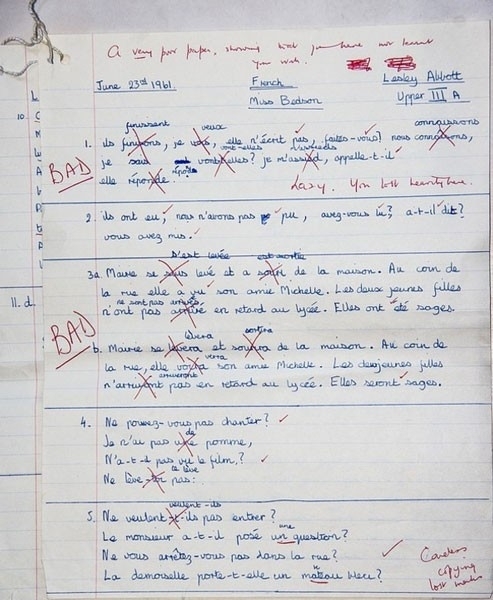 A very poor paper, showing that you have not learnt
your work.
June 23rd 1961 French Lesley Abbott
Miss Bedson Upper III A
finissent veux connaissons
1. ils finirons, je vois, elle n'écrit pas, faites-vous? nous connaisons,
vont-elles m'assieds
je sais vont-elles? je m'assied, appelle-t-il
BAD
répond
elle réponde. Lazy. You lost heavily here.
2. ils ont eu, nous n'avons pas pu, avez-vous lu? a-t-il dit?
vous avez mis.
s'est levée est sortie
3a. Marie se levé et a sorti de la maison. Au coin de
la rue elle a vu son amie Michelle. Les deux jeunes filles
ne sont pas arrivés
n'ont pas arrivé en retard au lycée. Elles ont été sages.
BAD
lèvera sortira
b. Marie se levera et soutira de la maison. Au coin de
verra
la rue, elle voira son amie Michelle. Les deux jeunes filles
arriveront
n'arriyont pas en retard au lycée. Elles seront sages.
4. Ne pouvez-vous pas chanter?
de
Je n'ai pas une pomme,
N'a-t-il pas vu le film,?
le lève
Ne lève-toi pas.
veulent-ils
5. Ne veulent-t-ils pas entrer?
une
Le monsieur a-t-il posé un question?
Ne vous arrêtez-vous pas dans la rue?
La demoiselle porte-t-elle un mateau bleu?
Careless
copying
lost marks
10.
11. d.